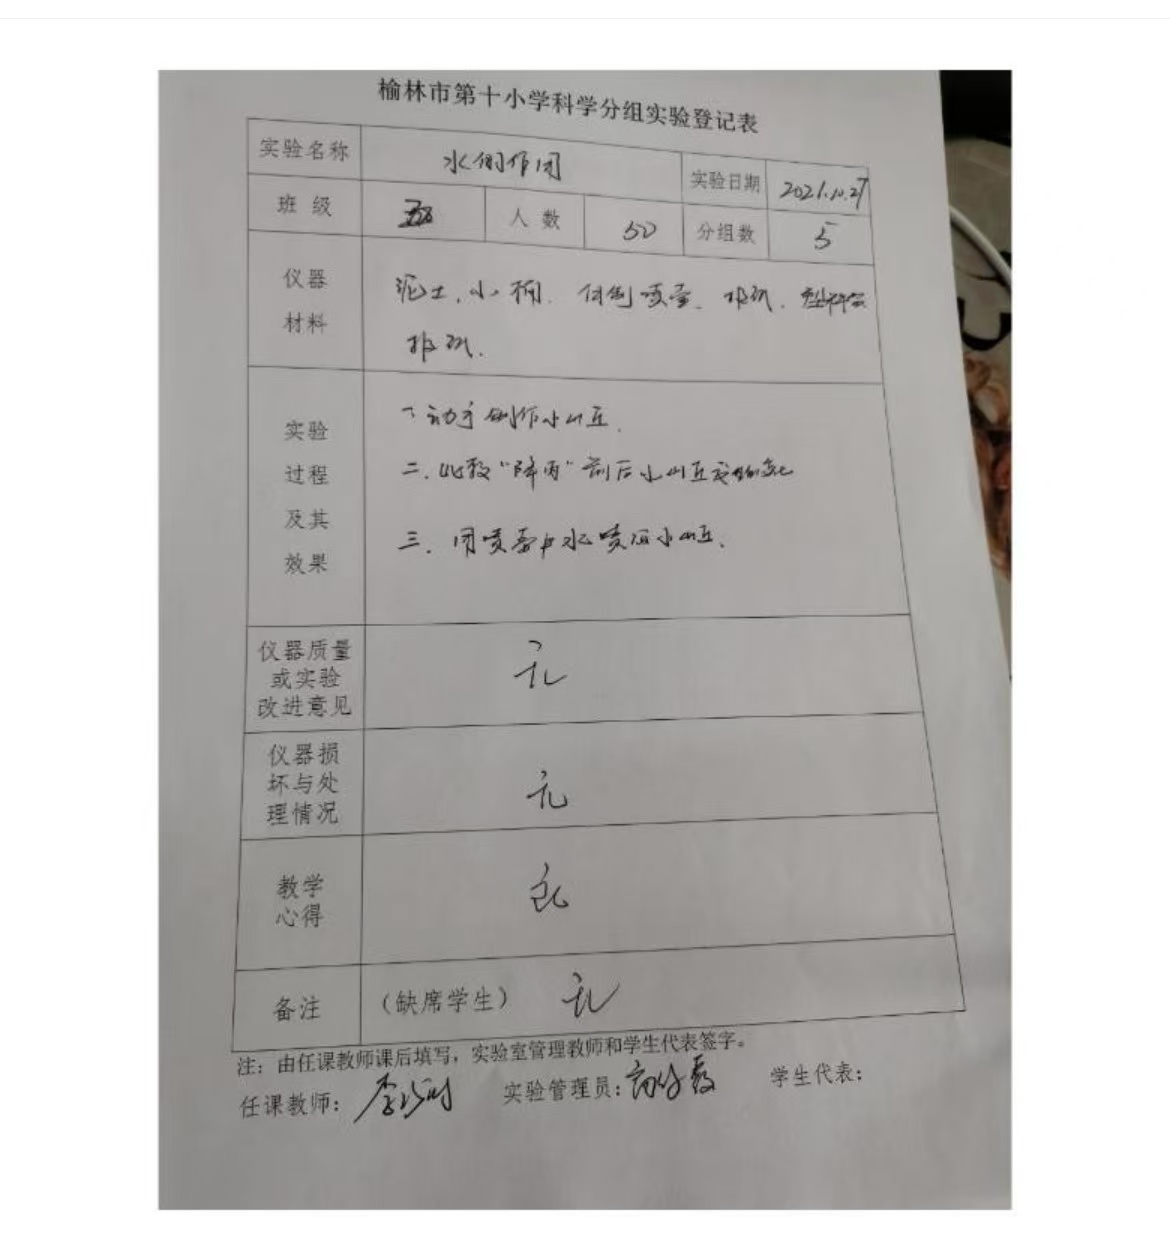 榆林市第十小学科学分组实验登记表
实验名称 水的作用 实验日期 2021.10.27
班级 人数 50 分组数 5
仪器材料 泥土、小桶、报纸、
报纸.
实验过程及其效果 一、动手制作小山丘.
二、比较“降雨”前后小山丘变化
三、用水喷洒小山丘.
仪器质量或实验改进意见 无
仪器损坏与处理情况 无
教学心得 无
备注 (缺席学生) 无
注:由任课教师课后填写,实验室管理教师和学生代表签字。
任课教师: 实验管理员: 学生代表: